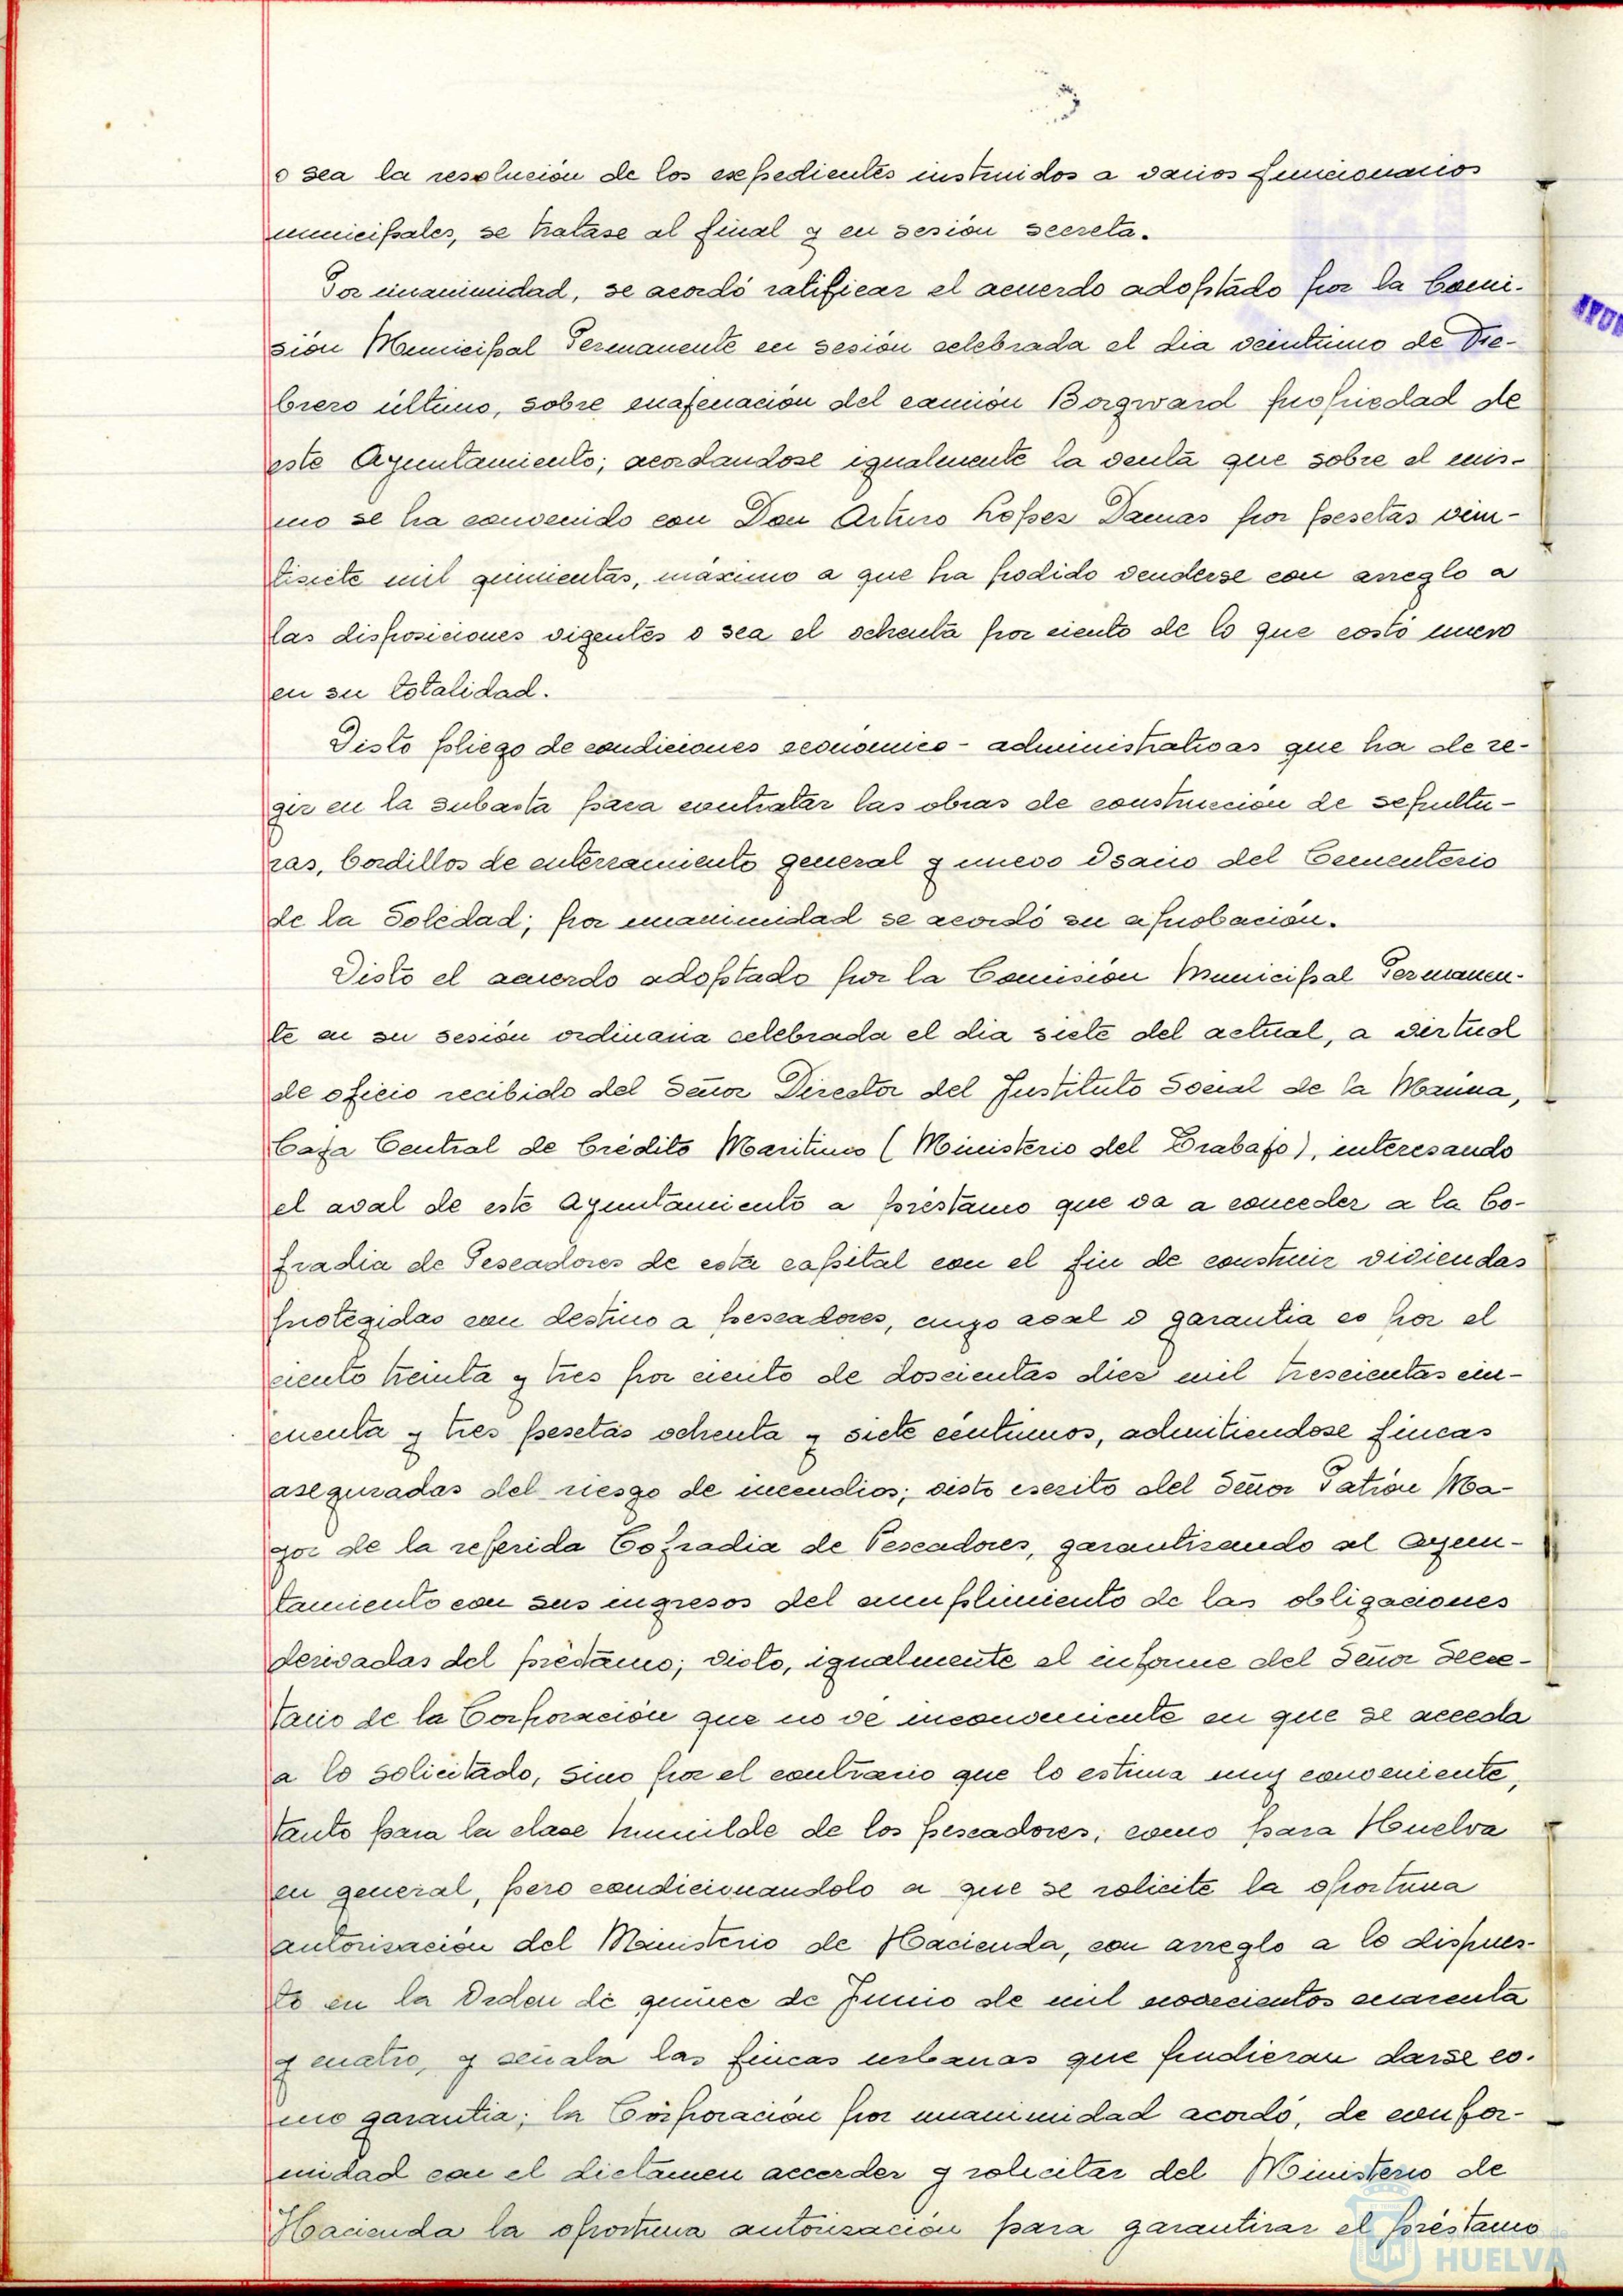 o sea la resolución de los expedientes instruidos a varios funcionarios
municipales, se tratase al final y en sesión secreta.
Por unanimidad, se acordó ratificar el acuerdo adoptado por la Comi-
sión Municipal Permanente en sesión celebrada el dia veintiuno de Fe-
brero último, sobre enajenación del camión Borgward propiedad de
este Ayuntamiento; acordandose igualmente la venta que sobre el mis-
mo se ha convenido con Don Arturo Lopez Damas por pesetas vein-
tisiete mil quinientas, máximo a que ha podido venderse con arreglo a
las disposiciones vigentes o sea el ochenta por ciento de lo que costó nuevo
en su totalidad.
Visto pliego de condiciones económico-administrativas que ha de re-
gir en la subasta para contratar las obras de construcción de sepultu-
ras, bordillos de enterramiento general y nuevo osario del Cementerio
de la Soledad; por unanimidad se acordó su aprobación.
Visto el acuerdo adoptado por la Comisión Municipal Permanen-
te en su sesión ordinaria celebrada el dia siete del actual, a virtud
de oficio recibido del Señor Director del Instituto Social de la Marina,
Caja Central de Crédito Maritimo (Ministerio del Trabajo), interesando
el aval de este Ayuntamiento a préstamo que va a conceder a la Co-
fradia de Pescadores de esta capital con el fin de construir viviendas
protegidas con destino a pescadores, cuyo aval o garantia es por el
ciento treinta y tres por ciento de doscientas diez mil trescientas cin-
cuenta y tres pesetas ochenta y siete céntimos, admitiendose fincas
aseguradas del riesgo de incendios; visto escrito del Señor Patrón Ma-
yor de la referida Cofradia de Pescadores, garantizando al Ayun-
tamiento con sus ingresos del cumplimiento de las obligaciones
derivadas del préstamo; visto, igualmente el informe del Señor Secre-
tario de la Corporación que no vé inconveniente en que se acceda
a lo solicitado, sino por el contrario que lo estima muy conveniente,
tanto para la clase humilde de los pescadores, como para Huelva
en general, pero condicionandolo a que se solicite la oportuna
autorización del Ministerio de Hacienda, con arreglo a lo dispues-
to en la Orden de quince de Junio de mil novecientos cuarenta
y cuatro, y señala las fincas urbanas que pudieran darse co-
mo garantia; la Corporación por unanimidad acordó, de confor-
midad con el dictamen acceder y solicitar del Ministerio de
Hacienda la oportuna autorización para garantizar el préstamo
HUELVA